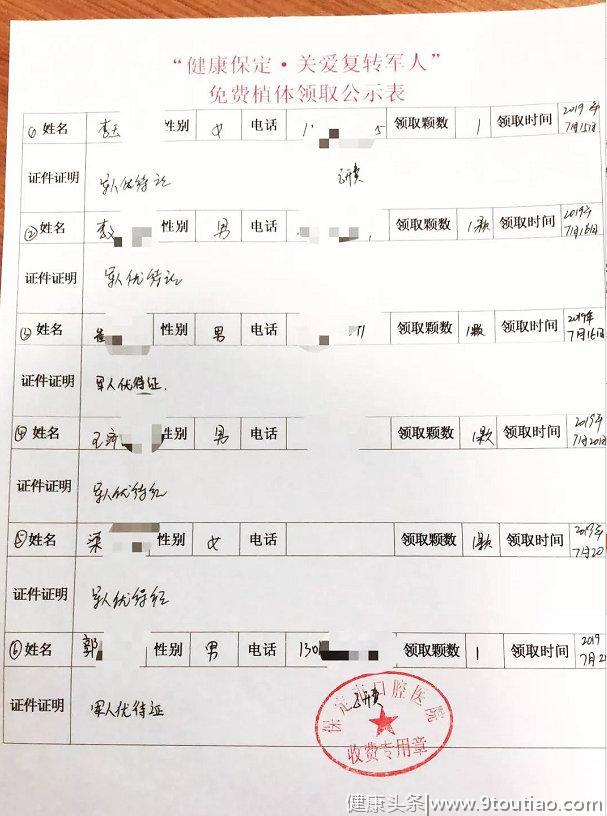 “健康保定·关爱复转军人”
免费植体领取公示表
① 姓名 李 性别 女 电话 1 5 领取颗数 1 领取时间 2019年7月15日
证件证明 军人优待证 已领
② 姓名 李 性别 男 电话 领取颗数 1颗 领取时间 2019年7月16日
证件证明 军人优待证
③ 姓名 崔 性别 男 电话 11 领取颗数 1颗 领取时间 2019年7月16日
证件证明 军人优待证.
④ 姓名 王 性别 男 电话 领取颗数 1颗 领取时间 2019年7月20日
证件证明 军人优待证
⑤ 姓名 梁 性别 女 电话 领取颗数 1颗 领取时间 2019年7月20
证件证明 军人优待证
⑥ 姓名 郭 性别 男 电话 130 领取颗数 1 领取时间 2019 7月2
证件证明 军人优待证
保定市口腔医院
收费专用章
健康头条/www.9toutiao.com